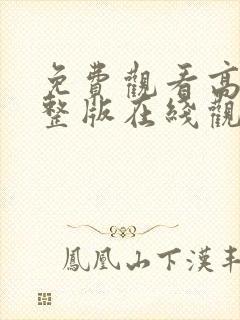 免費觀看高
整版在綫觀
鳳凰山下漢丰